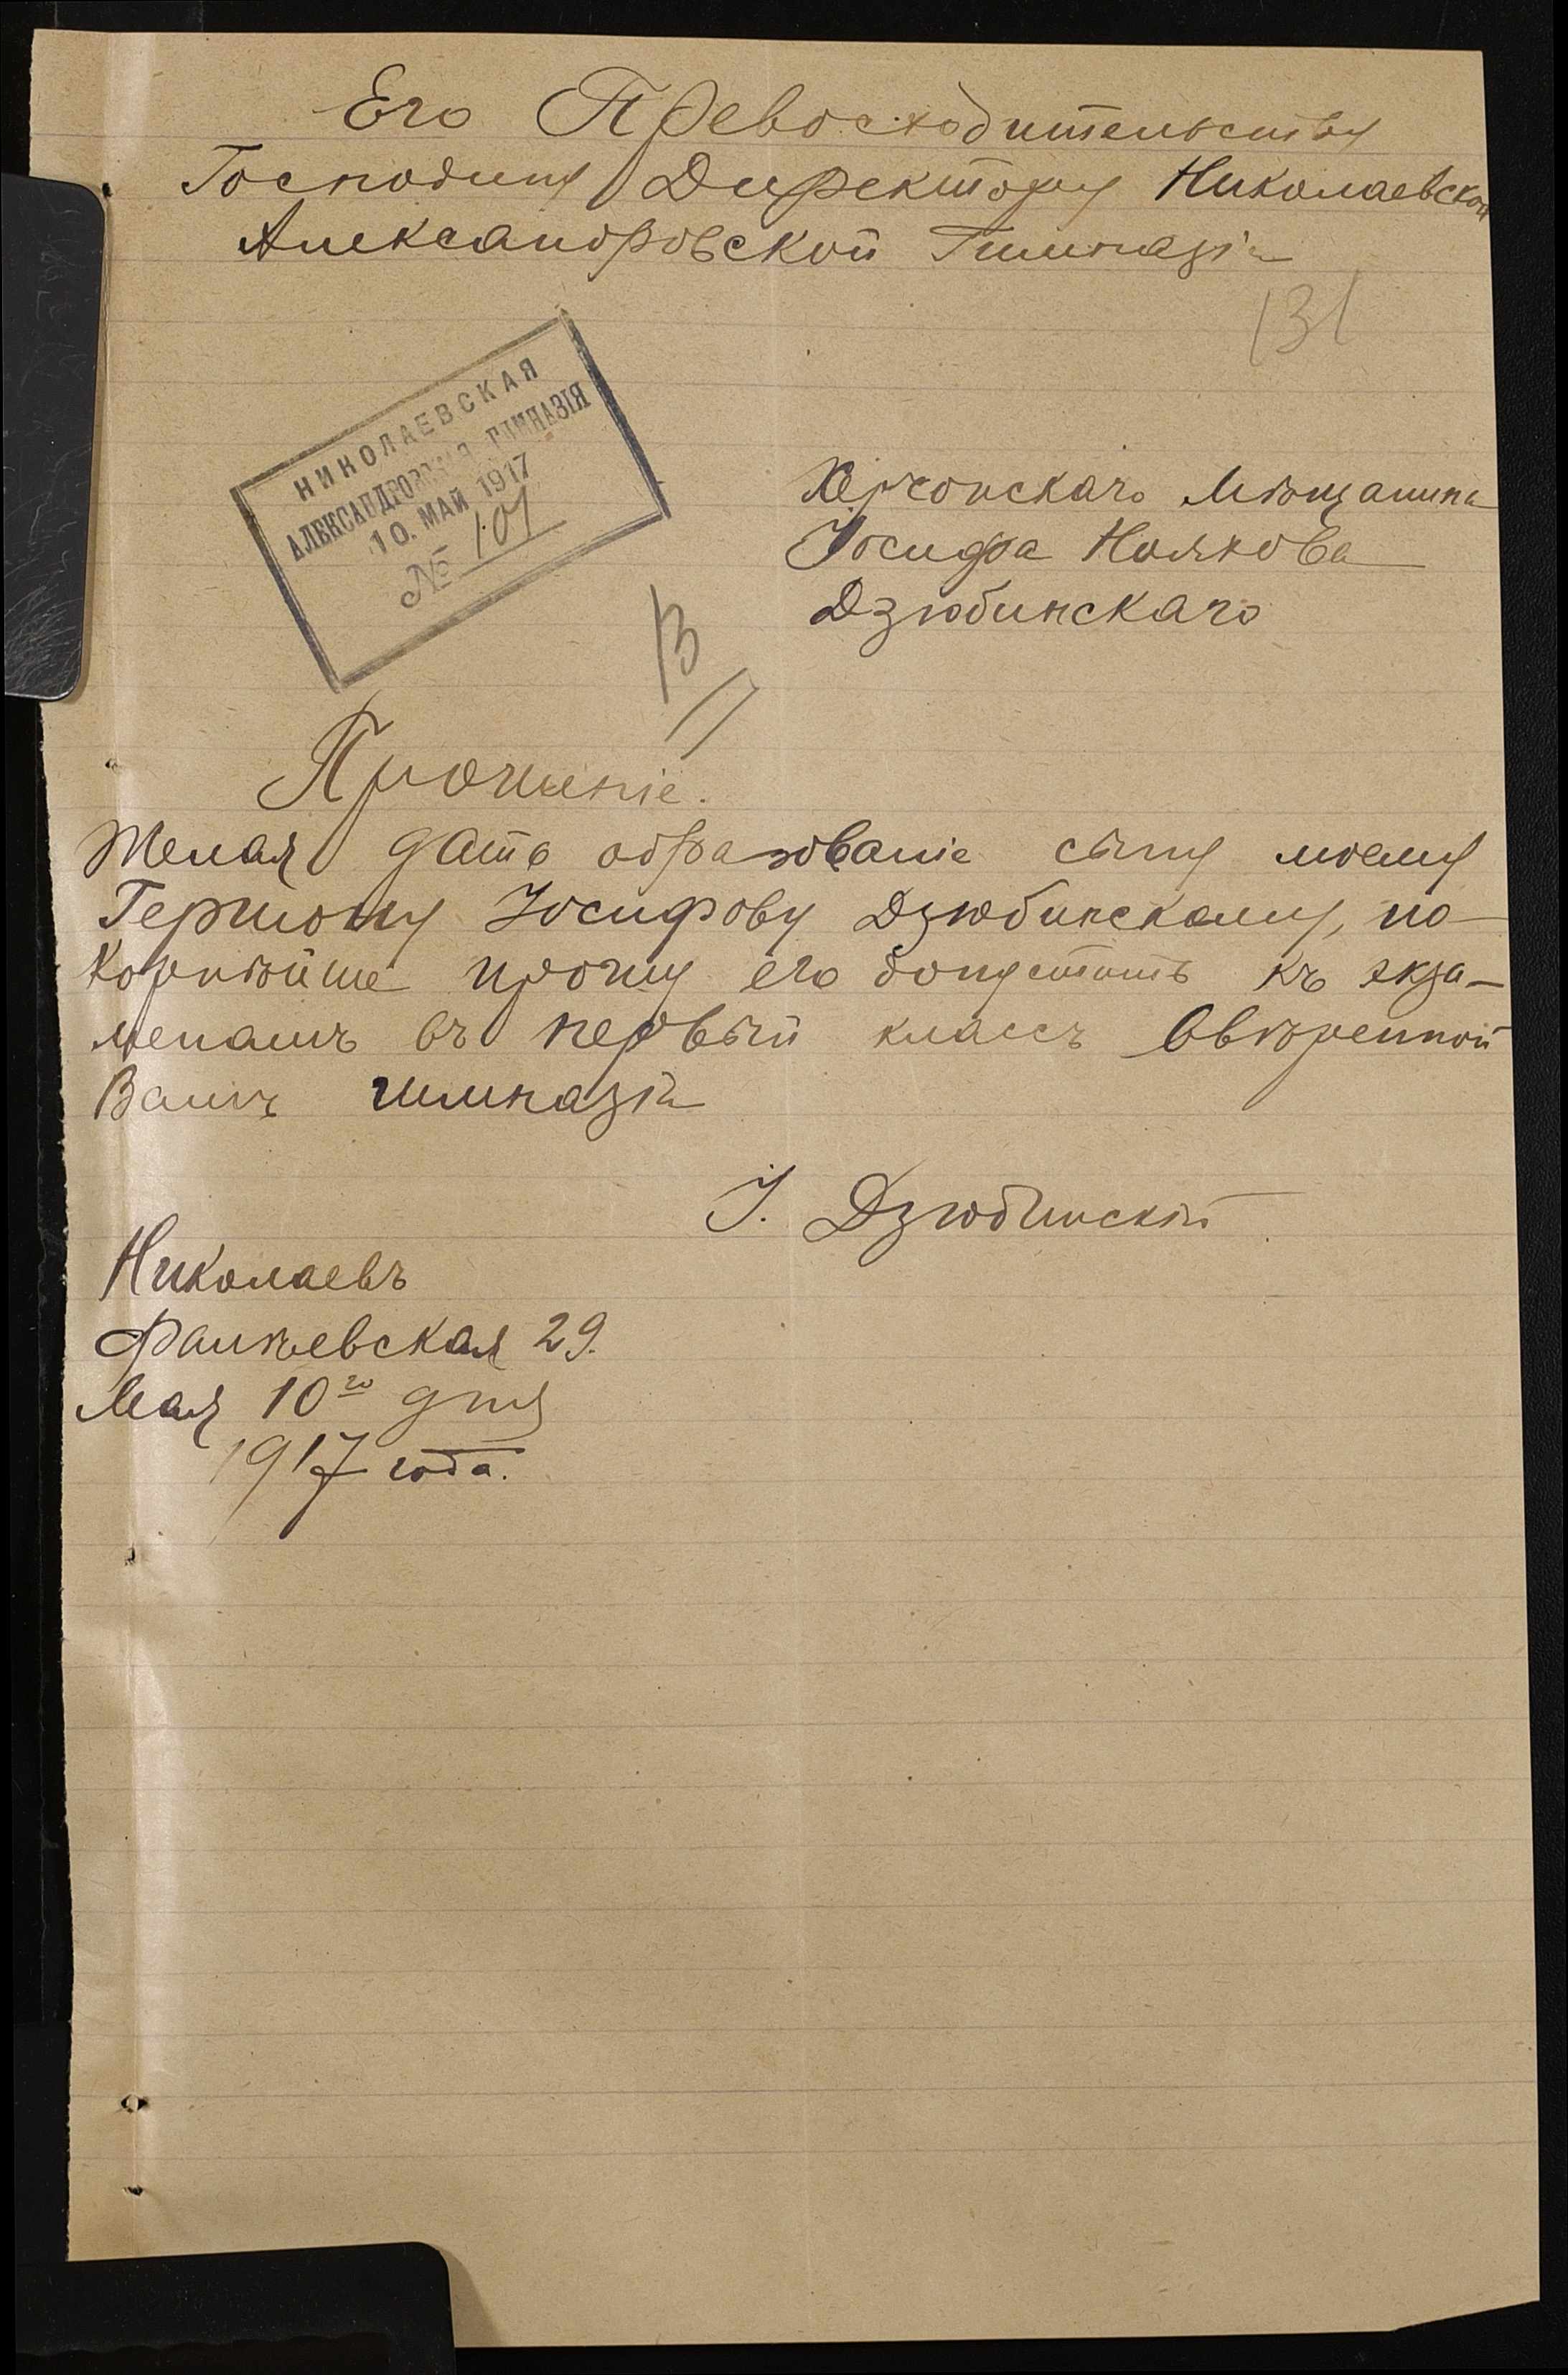 Его Превосходительству
Господину Директору Николаевской
Александровской Гимназіи
131
НИКОЛАЕВСКАЯ
АЛЕКСАНДРОВСКАЯ ГИМНАЗІЯ
10. МАЙ 1917
№ 107
Херсонскаго Мѣщанина
Іосифа Ноякова
Дзюбинскаго
Прошеніе.
Желая дать образованіе сыну моему
Гершону Іосифову Дзюбинскому, по-
корнѣйше прошу его допустить къ экза-
менамъ въ первый классъ ввѣренной
Вамъ гимназіи
І. Дзюбинскій
Николаевъ
Фалѣевская 29.
Мая 10го дня
1917 года.